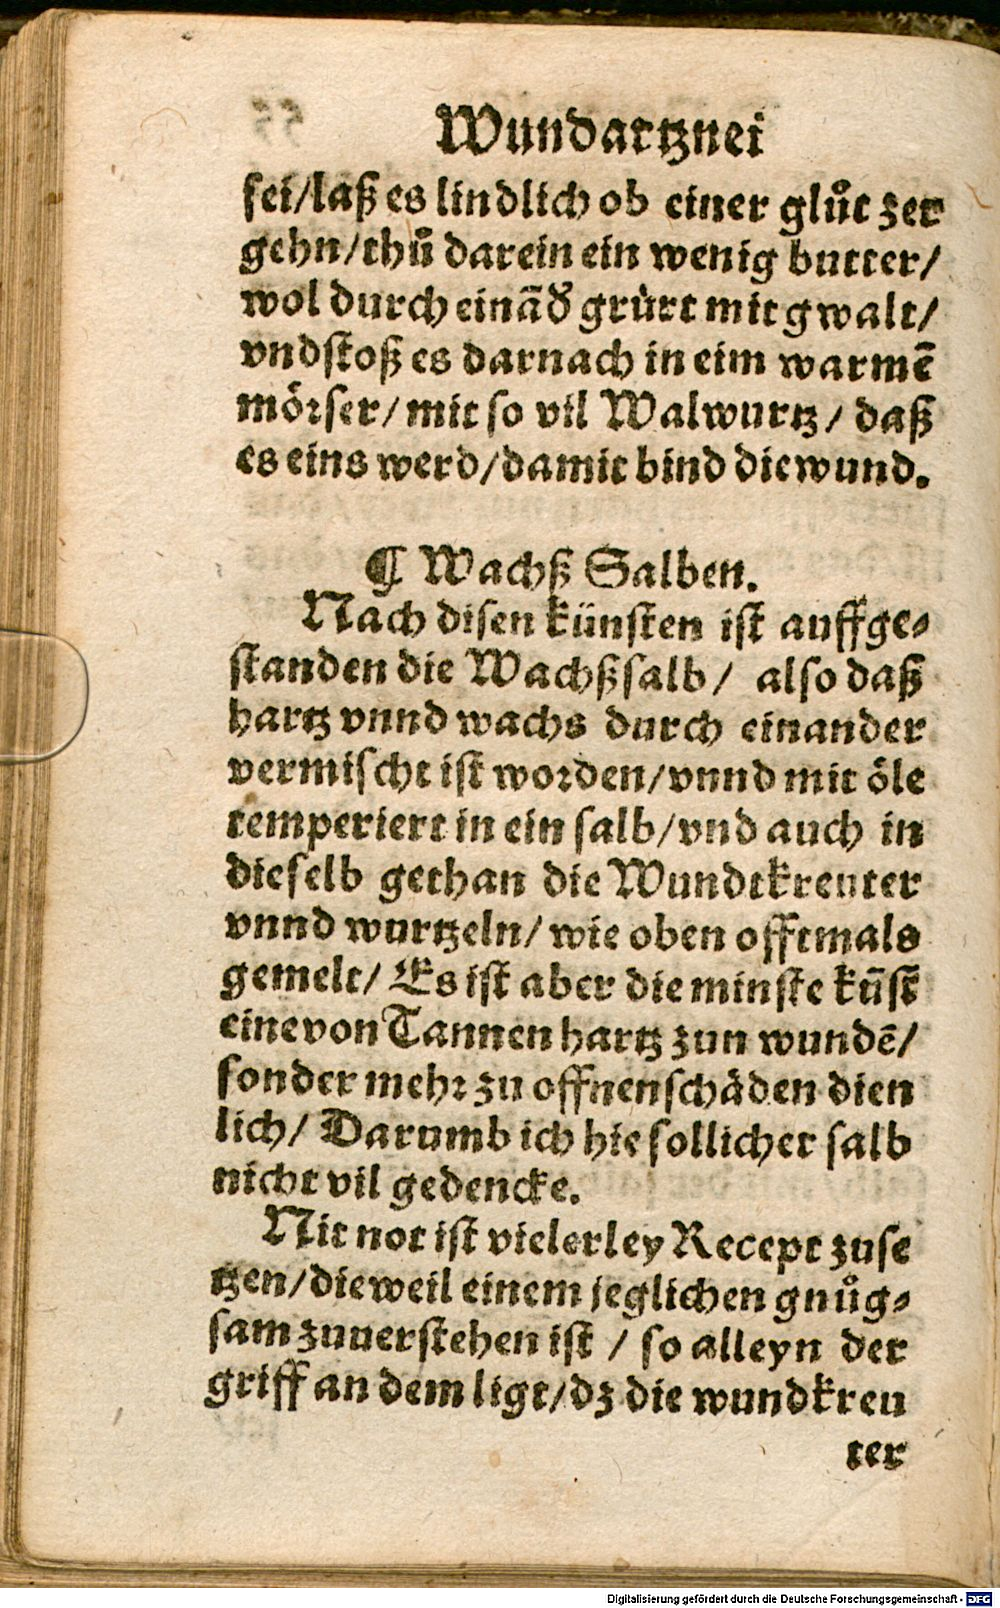 Wundartznei
sei/laß es lindlich ob einer gluͦt zer
gehn/thuͦ darein ein wenig butter/
wol durch einãd̕ gruͤrt mit gwalt/
vndstoß es darnach in eim warmẽ
moͤꝛser/mit so vil Walwurtz/daß
es eins werd/damit bind die wund.
¶ Wachß Salben.
Nach disen kuͤnsten ist auffge⸗
standen die Wachßsalb/ also daß
hartz vnnd wachs durch einander
vermischt ist woꝛden/vnnd mit oͤle
temperiert in ein salb/vnd auch in
dieselb gethan die Wundtkreuter
vnnd wurtzeln/wie oben offtmals
gemelt/Es ist aber die minste kũst
eine von Tannen hartz zun wundẽ/
sonder mehꝛ zu offnen schaͤden dien
lich/Darumb ich hie sollicher salb
nicht vil gedencke.
Nit not ist vielerley Recept zuse
tzen/dieweil einem jeglichen gnuͦg⸗
sam zuuerstehen ist / so alleyn der
griff an dem ligt/dz die wundkreu
ter
Digitalisierung gefördert durch die Deutsche Forschungsgemeinschaft - DFG